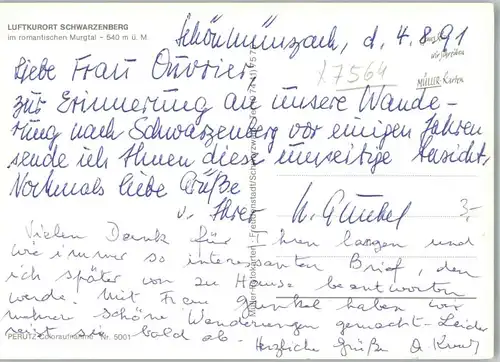 LUFTKURORT SCHWARZENBERG
im romantischen Murgtal - 540 m ü. M.
Schönmünzach, d. 4.8.91
Liebe Frau Ouvrier,
17564
MÜLLER-Karten
zur Erinnerung an unsere Wande-
rung nach Schwarzenberg vor einigen Jahren
sende ich Ihnen diese umseitige Ansicht.
Nochmals liebe Grüße
v. Ihrer
3,-
Vielen Dank für Ihren langen und
wie immer so interessanten Brief, den
ich später von zu Hause beantworten
werde. Mit Frau Gunkel haben wir
mehrere schöne Wanderungen gemacht. Leider
reist sie bald ab. Herzliche Grüße
PERUTZ-Coloraufnahme Nr. 5001